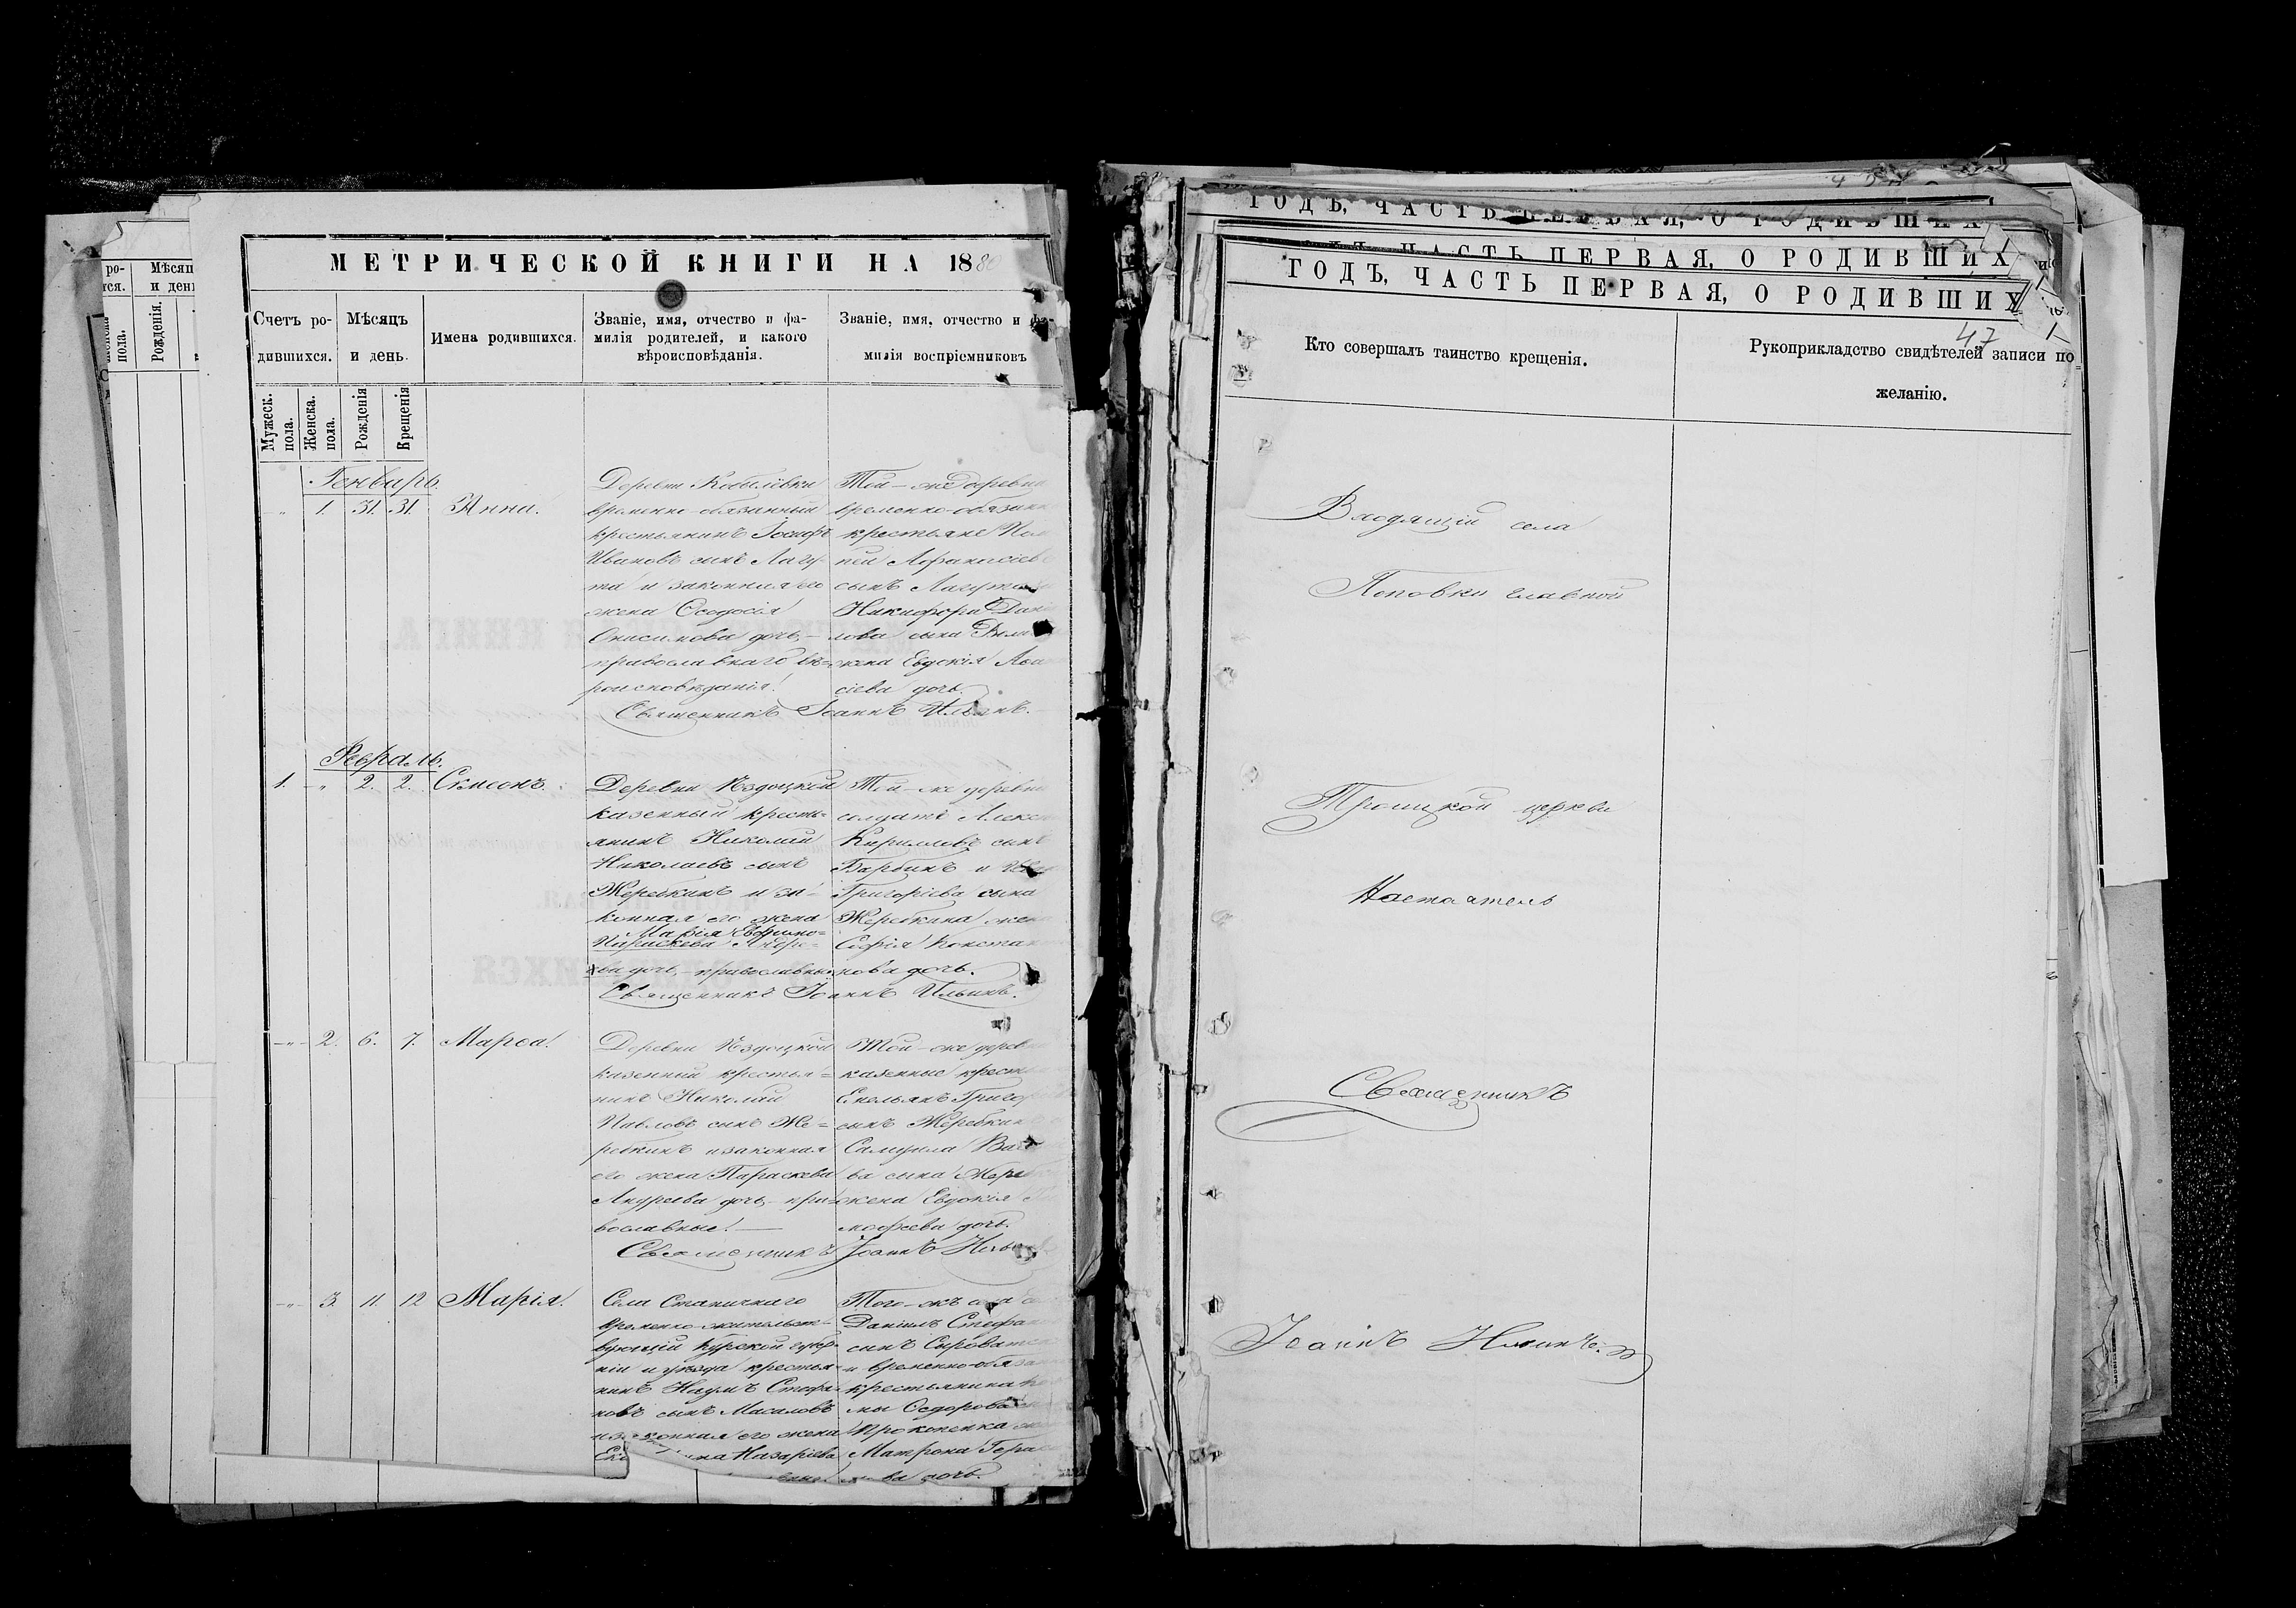 МЕТРИЧЕСКОЙ КНИГИ НА 1880
Счетъ ро-
дившихся.
Мѣсяцъ
и день.
Имена родившихся.
Званіе, имя, отчество и фа-
милія родителей, и какого
вѣроисповѣданія.
Званіе, имя, отчество и фа-
милія воспріемниковъ
Мужеск.
пола.
Женска.
пола.
Рожденія
Крещенія
Генварь.
1. 31. 31. Анна.
Деревни Кобылевки
временно-обязанный
крестьянинъ Іосифъ
Ивановъ сынъ Лагу-
та и законная его
жена Ѳеодосія
Онисимова дочь, –
православнаго вѣ-
роисповѣданія.
Той-же деревни
временно-обязан
крестьяне
пей Аѳанасіев
сынъ Лагута
Никифора Дани
лова сына
жена Евдокія Аѳа
сіева дочь.
Священникъ Іоаннъ Ильинъ.
Февраль.
1. 2. 2. Симеонъ.
Деревни Ѣздоцкой
казенный кресть-
янинъ Николай
Николаевъ сынъ
Жеребкинъ и за-
конная его жена
Марія Ефимо-
Параскева Андре-
ва дочь, – православные
Той-же деревни
солдатъ Алекс
Кирилловъ сынъ
Барбинъ и
Григоріева сына
Жеребкина жена
Софія Конста
нова дочь.
Священникъ Іоаннъ Ильинъ.
2. 6. 7. Марѳа.
Деревни Ѣздоцкой
казенный крестья-
нинъ Николай
Павловъ сынъ Же-
ребкинъ и законная
его жена Параскева
Андреева дочь, – пра-
вославные.
Той-же дерев
казенные крест
Емельянъ Григор
сынъ Жеребкин
Самуила Васи
ва сына Жере
жена Евдокія
моѳеева дочь.
Священникъ Іоаннъ Ильинъ
3. 11. 12 Марія.
Села Станичнаго
временно-жительст-
вующій Курской губер-
ніи и уѣзда крестья-
нинъ Наумъ Стефа-
новъ сынъ Масаловъ
и законная его жена
Назаріева
Того-жъ села
Даніилъ Стефа
сынъ Сыроват
и временно-обязан
крестьянина
мы Ѳедорова
Прокопенка
Матрона Гера
ва дочь.
ГОДЪ, ЧАСТЬ ПЕРВАЯ, О РОДИВШИХ
ЧАСТЬ ПЕРВАЯ, О РОДИВШИХ
ГОДЪ, ЧАСТЬ ПЕРВАЯ, О РОДИВШИХ
47
Кто совершалъ таинство крещенія.
Рукоприкладство свидѣтелей записи по
желанію.
села
Поповки главной
Троицкой церкви
Настоятель
Священникъ
Іоаннъ Ильинъ.